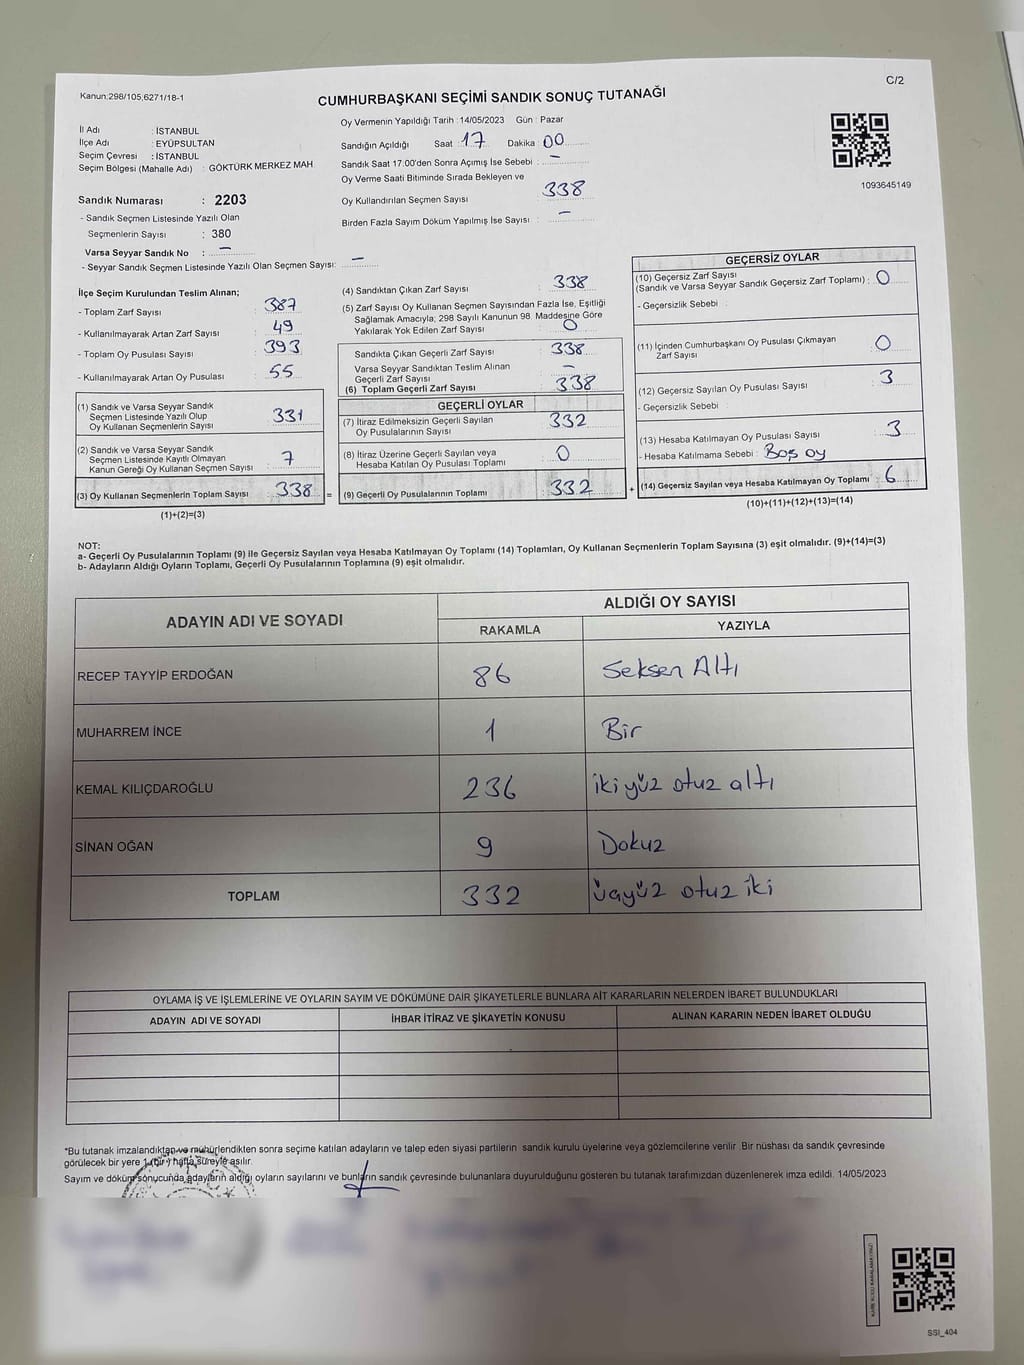 C/2
Kanun:298/105,6271/18-1
CUMHURBAŞKANI SEÇİMİ SANDIK SONUÇ TUTANAĞI
İl Adı : İSTANBUL
İlçe Adı : EYÜPSULTAN
Seçim Çevresi : İSTANBUL
Seçim Bölgesi (Mahalle Adı) : GÖKTÜRK MERKEZ MAH
Sandık Numarası : 2203
- Sandık Seçmen Listesinde Yazılı Olan
Seçmenlerin Sayısı : 380
Varsa Seyyar Sandık No : –
- Seyyar Sandık Seçmen Listesinde Yazılı Olan Seçmen Sayısı: –
Oy Vermenin Yapıldığı Tarih :14/05/2023 Gün : Pazar
Sandığın Açıldığı Saat : 17 Dakika : 00
Sandık Saat 17:00'den Sonra Açımış İse Sebebi : –
Oy Verme Saati Bitiminde Sırada Bekleyen ve
Oy Kullandırılan Seçmen Sayısı : 338
Birden Fazla Sayım Döküm Yapılmış İse Sayısı : –
1093645149
İlçe Seçim Kurulundan Teslim Alınan;
- Toplam Zarf Sayısı : 387
- Kullanılmayarak Artan Zarf Sayısı : 49
- Toplam Oy Pusulası Sayısı : 393
- Kullanılmayarak Artan Oy Pusulası : 55
(1) Sandık ve Varsa Seyyar Sandık
Seçmen Listesinde Yazılı Olup
Oy Kullanan Seçmenlerin Sayısı : 331
(2) Sandık ve Varsa Seyyar Sandık
Seçmen Listesinde Kayıtlı Olmayan
Kanun Gereği Oy Kullanan Seçmen Sayısı : 7
(3) Oy Kullanan Seçmenlerin Toplam Sayısı : 338 =
(1)+(2)=(3)
(4) Sandıktan Çıkan Zarf Sayısı : 338
(5) Zarf Sayısı Oy Kullanan Seçmen Sayısından Fazla İse, Eşitliği
Sağlamak Amacıyla; 298 Sayılı Kanunun 98. Maddesine Göre
Yakılarak Yok Edilen Zarf Sayısı : 0
Sandıkta Çıkan Geçerli Zarf Sayısı : 338
Varsa Seyyar Sandıktan Teslim Alınan
Geçerli Zarf Sayısı : –
(6) Toplam Geçerli Zarf Sayısı : 338
GEÇERLİ OYLAR
(7) İtiraz Edilmeksizin Geçerli Sayılan
Oy Pusulalarının Sayısı : 332
(8) İtiraz Üzerine Geçerli Sayılan veya
Hesaba Katılan Oy Pusulası Toplamı : 0
(9) Geçerli Oy Pusulalarının Toplamı : 332 +
GEÇERSİZ OYLAR
(10) Geçersiz Zarf Sayısı
(Sandık ve Varsa Seyyar Sandık Geçersiz Zarf Toplamı) : 0
- Geçersizlik Sebebi :
(11) İçinden Cumhurbaşkanı Oy Pusulası Çıkmayan
Zarf Sayısı : 0
(12) Geçersiz Sayılan Oy Pusulası Sayısı : 3
- Geçersizlik Sebebi :
(13) Hesaba Katılmayan Oy Pusulası Sayısı : 3
- Hesaba Katılmama Sebebi : Boş oy
(14) Geçersiz Sayılan veya Hesaba Katılmayan Oy Toplamı : 6
(10)+(11)+(12)+(13)=(14)
NOT:
a- Geçerli Oy Pusulalarının Toplamı (9) ile Geçersiz Sayılan veya Hesaba Katılmayan Oy Toplamı (14) Toplamları, Oy Kullanan Seçmenlerin Toplam Sayısına (3) eşit olmalıdır. (9)+(14)=(3)
b- Adayların Aldığı Oyların Toplamı, Geçerli Oy Pusulalarının Toplamına (9) eşit olmalıdır.
ADAYIN ADI VE SOYADI ALDIĞI OY SAYISI
RAKAMLA YAZIYLA
RECEP TAYYİP ERDOĞAN 86 Seksen Altı
MUHARREM İNCE 1 Bir
KEMAL KILIÇDAROĞLU 236 ikiyüz otuz altı
SİNAN OĞAN 9 Dokuz
TOPLAM 332 üçyüz otuz iki
OYLAMA İŞ VE İŞLEMLERİNE VE OYLARIN SAYIM VE DÖKÜMÜNE DAİR ŞİKAYETLERLE BUNLARA AİT KARARLARIN NELERDEN İBARET BULUNDUKLARI
ADAYIN ADI VE SOYADI İHBAR İTİRAZ VE ŞİKAYETİN KONUSU ALINAN KARARIN NEDEN İBARET OLDUĞU
*Bu tutanak imzalandıktan ve mühürlendikten sonra seçime katılan adayların ve talep eden siyasi partilerin sandık kurulu üyelerine veya gözlemcilerine verilir. Bir nüshası da sandık çevresinde
görülecek bir yere 1 (bir) hafta süreyle asılır.
Sayım ve döküm sonucunda adayların aldığı oyların sayılarını ve bunların sandık çevresinde bulunanlara duyurulduğunu gösteren bu tutanak tarafımızdan düzenlenerek imza edildi. 14/05/2023
KARE KODU KARALAMAYINIZ!
SSI_404